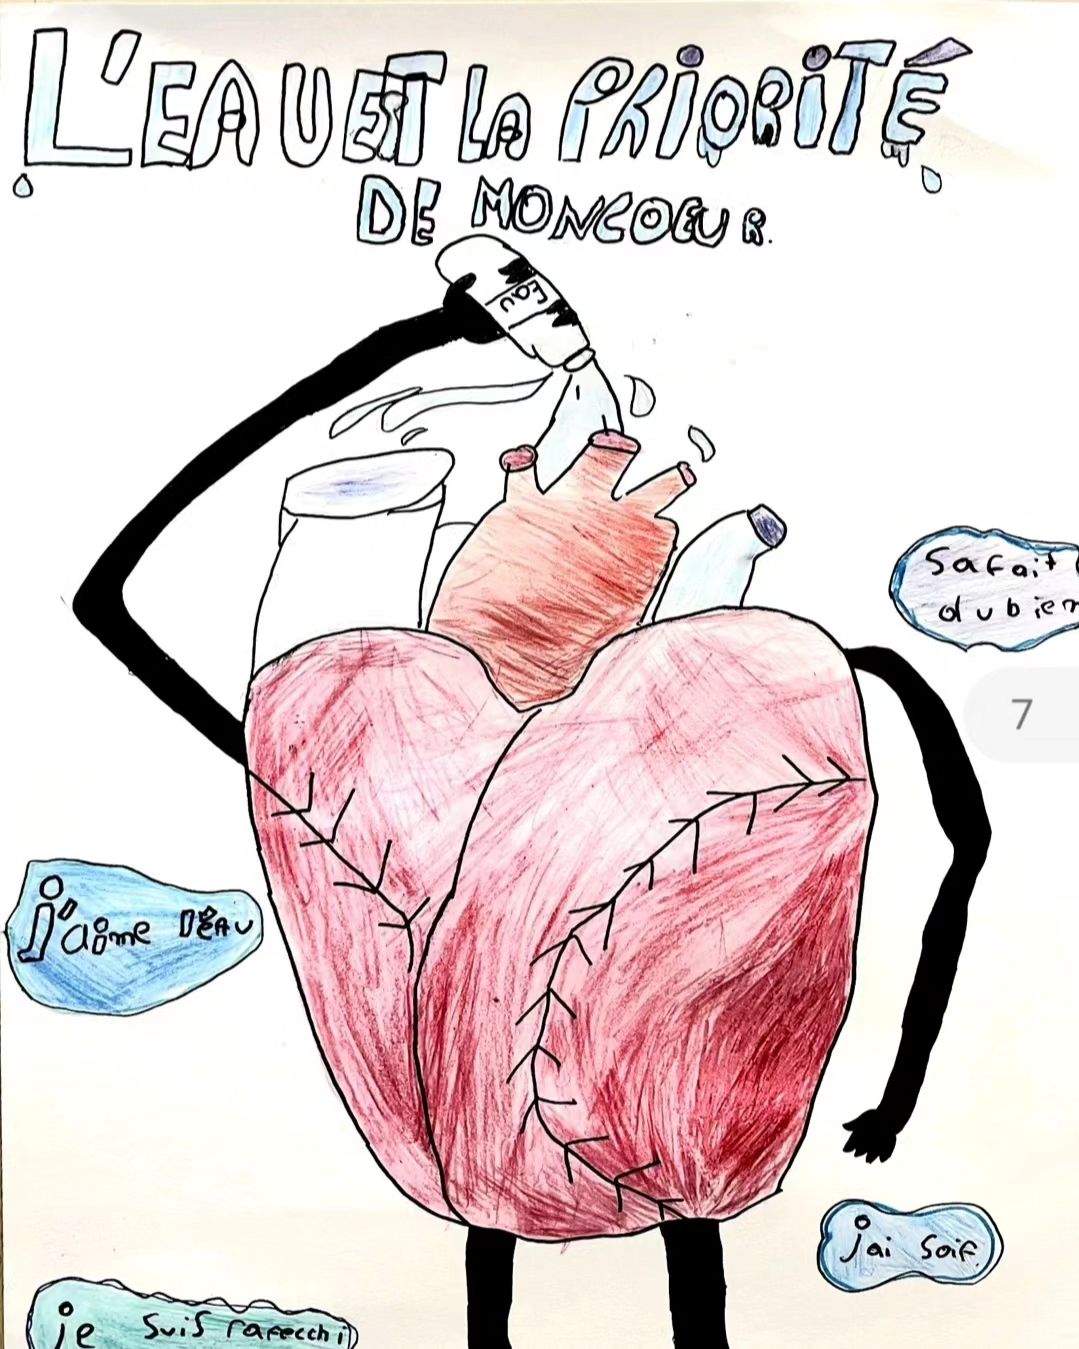 L'EAU EST LA PRIORITÉ
DE MONCOEUR.
Eau
safait
dubien
7
j'aime l'êAU
jai soif
je suis rafecchi